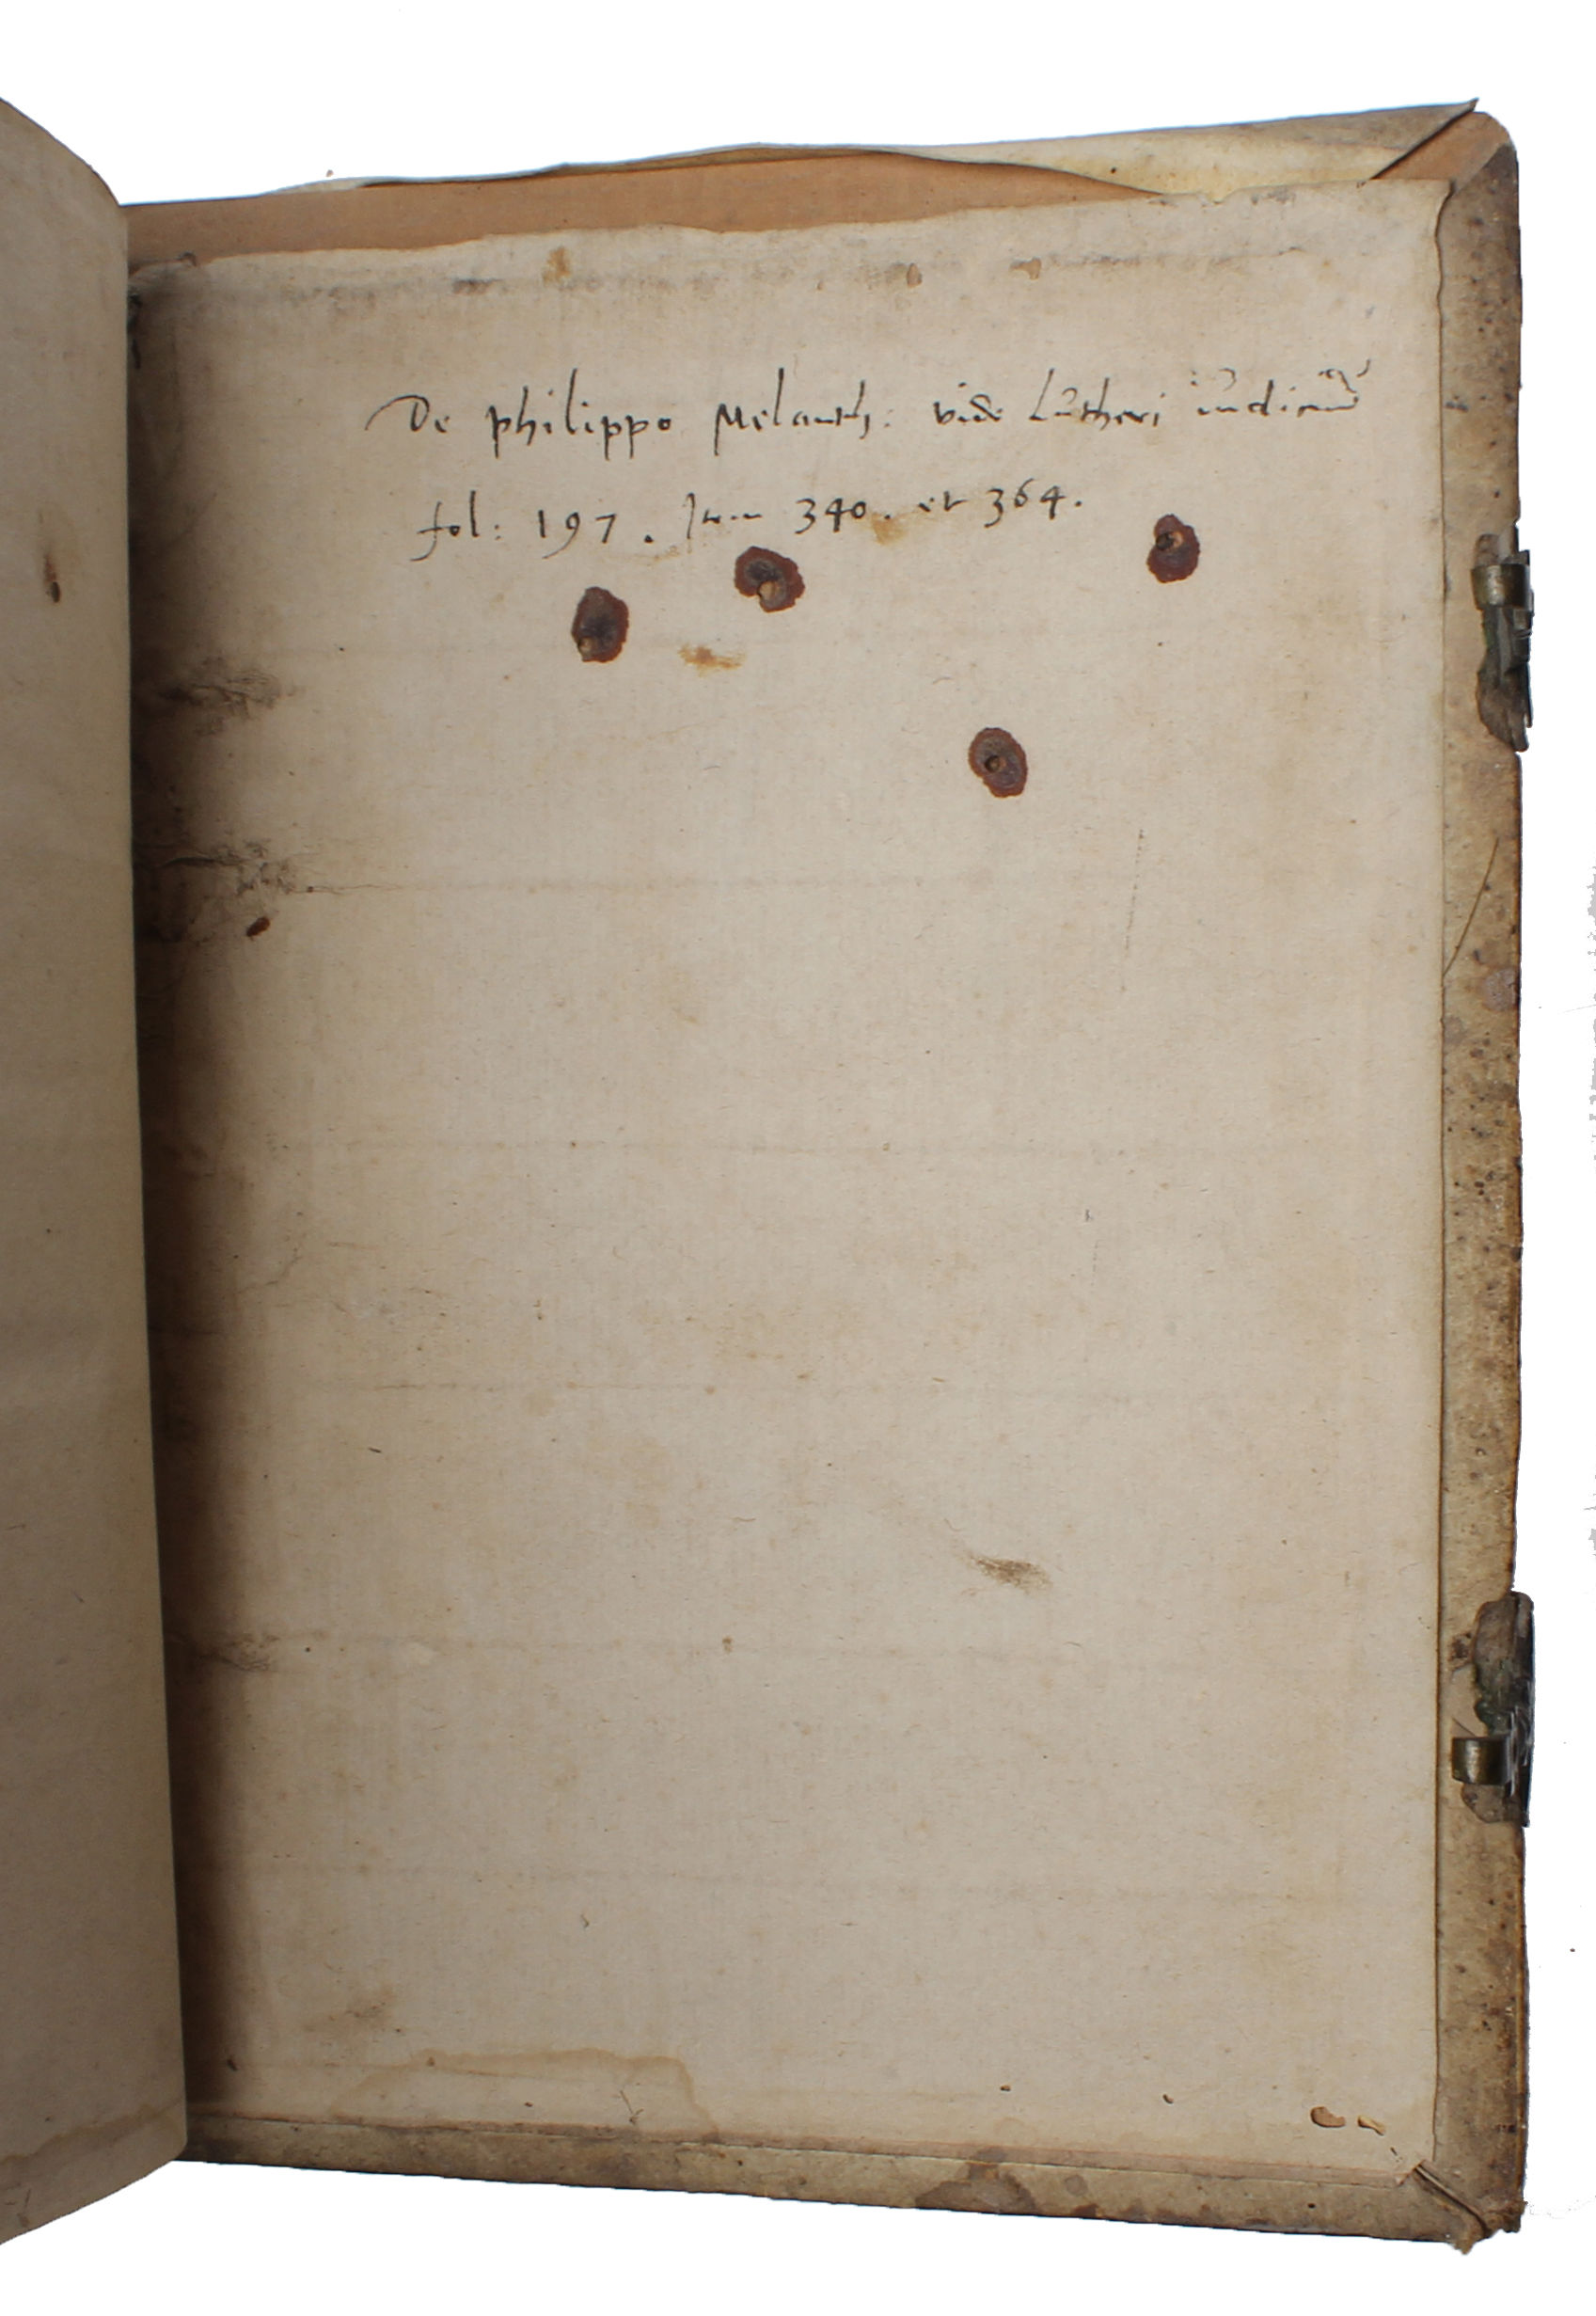 De Philippo Melanth: vide Lutheri iudiciū
fol: 197. Item 340. et 364.